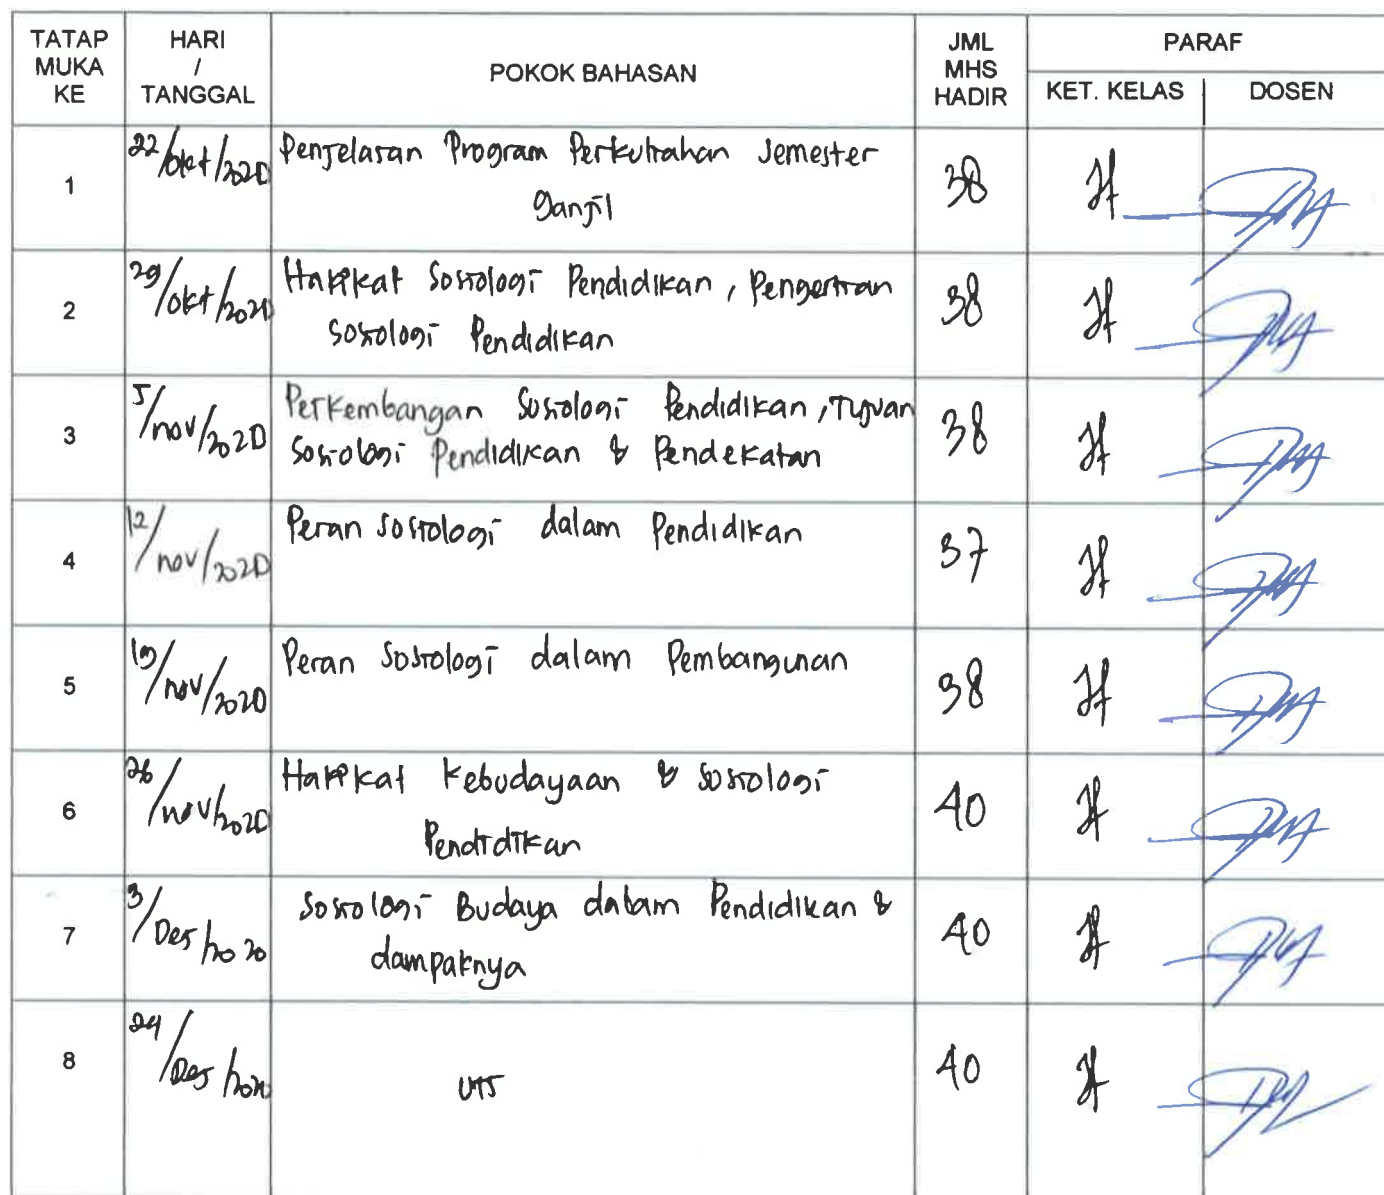 TATAP MUKA KE HARI / TANGGAL POKOK BAHASAN JML MHS HADIR PARAF
KET. KELAS DOSEN
1 22/okt/2020 Penjelasan Program Perkuliahan Semester 38
ganjil
2 29/okt/2020 Hakikat Sosiologi Pendidikan, Pengertian 38
sosiologi Pendidikan
3 5/nov/2020 Perkembangan Sosiologi Pendidikan, Tujuan 38
Sosiologi Pendidikan & Pendekatan
4 12/nov/2020 Peran sosiologi dalam Pendidikan 37
5 19/nov/2020 Peran Sosiologi dalam Pembangunan 38
6 26/nov/2020 Hakikat Kebudayaan & sosiologi 40
Pendidikan
7 3/Des/2020 Sosiologi Budaya dalam Pendidikan & 40
dampaknya
8 24/Des/2020 UTS 40